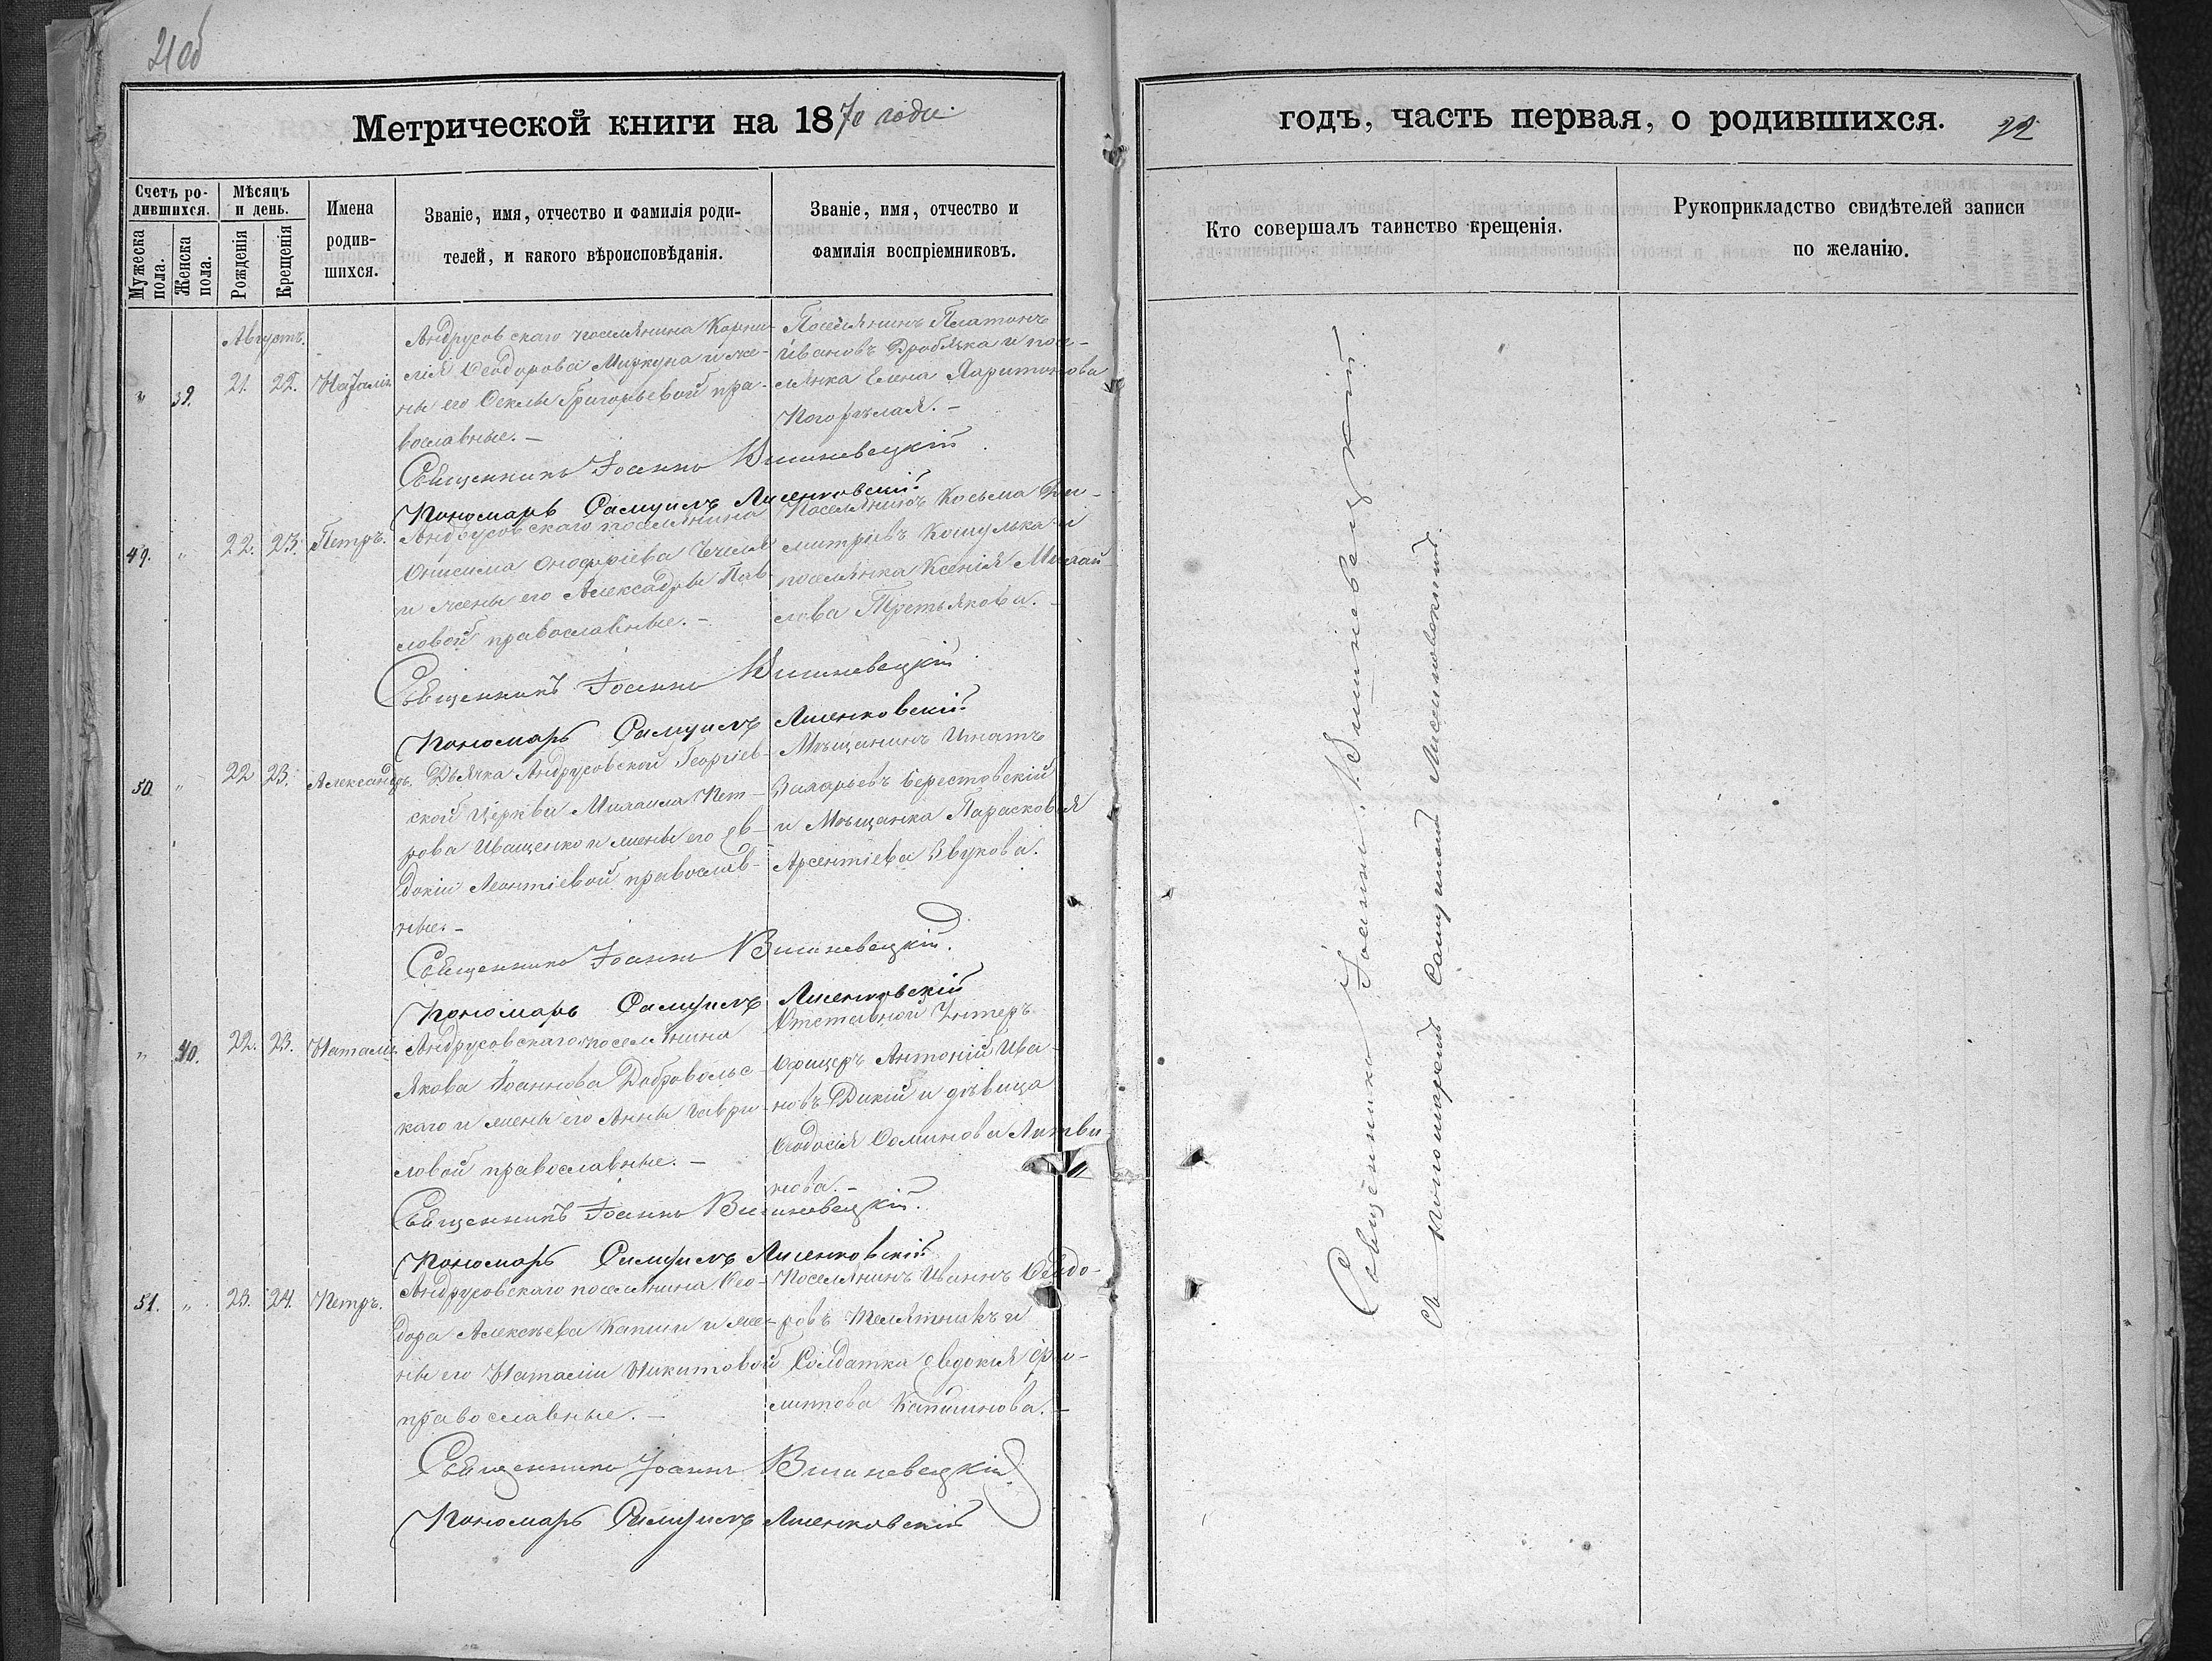 21об
Метрической книги на 1870 годъ.
Счетъ ро-
дившихся.
Мѣсяцъ
и день.
Мужеска
пола.
Женска
пола.
Рожденія
Крещенія
Имена
родив-
шихся.
Званіе, имя, отчество и фамилія роди-
телей, и какого вѣроисповѣданія.
Званіе, имя, отчество и
фамилія воспріемниковъ.
Августъ.
" 39. 21. 22. Наталія
Андрусовскаго поселянина Корни-
лія Ѳеодорова Миркуна и же-
ны его Ѳеклы Григорьевой пра-
вославные. –
Поселянинъ Платонъ
Ивановъ Дробязка и посе-
лянка Елена Харитонова
Погорѣлая. –
Священникъ Іоаннъ Вишневецкій
Пономарь Самуилъ Лисенковскій.
49. " 22. 23. Петръ.
Андрусовскаго поселянина
Онисима Онофріева
и жены его Александры Пав-
ловой православные. –
Поселянинъ Косьма Ди-
митріевъ Кошулька и
поселянка Ксенія Михаи-
лова Третьякова. –
Священникъ Іоаннъ Вишневецкій
Пономарь Самуилъ Лисенковскій
50. " 22 23. Александръ.
Дьячка Андрусовской Георгіев-
ской Церкви Михаила Пет-
рова Иващенко и жены его Ев-
докіи Леонтіевой православ-
ные. –
Мѣщанинъ Игнатъ
Захарьевъ Берестовскій
и Мѣщанка Парасковія
Арсентіева Звукова.
Священникъ Іоаннъ Вишневецкій.
Пономарь Самуилъ Лисенковскій
" 40. 22. 23. Наталія
Андрусовскаго поселянина
Якова Іоаннова Добровольс-
каго и жены его Анны Гаври-
ловой православные. –
Отставной Унтеръ
Офицеръ Антоній Ива-
новъ Дикій и дѣвица
Ѳеодосія Фоминова Литви-
нова. –
Священникъ Іоаннъ Вишневецкій.
Пономарь Самуилъ Лисенковскій
51. " 23. 24. Петръ.
Андрусовскаго поселянина Ѳео-
дора Алексѣева Капши и же-
ны его Наталіи Никитовой
православные. –
Поселянинъ Иванъ Ѳеодо-
ровъ Телятникъ и
Солдатка Евдокія Фи-
липпова Капшинова. –
Священникъ Іоаннъ Вишневецкій
Пономарь Самуилъ Лисенковскій
годъ, часть первая, о родившихся.
22
Кто совершалъ таинство крещенія.
Рукоприкладство свидѣтелей записи
по желанію.
Священникъ Іоаннъ Вишневецкій
съ пономаремъ Самуиломъ Лисенковскимъ